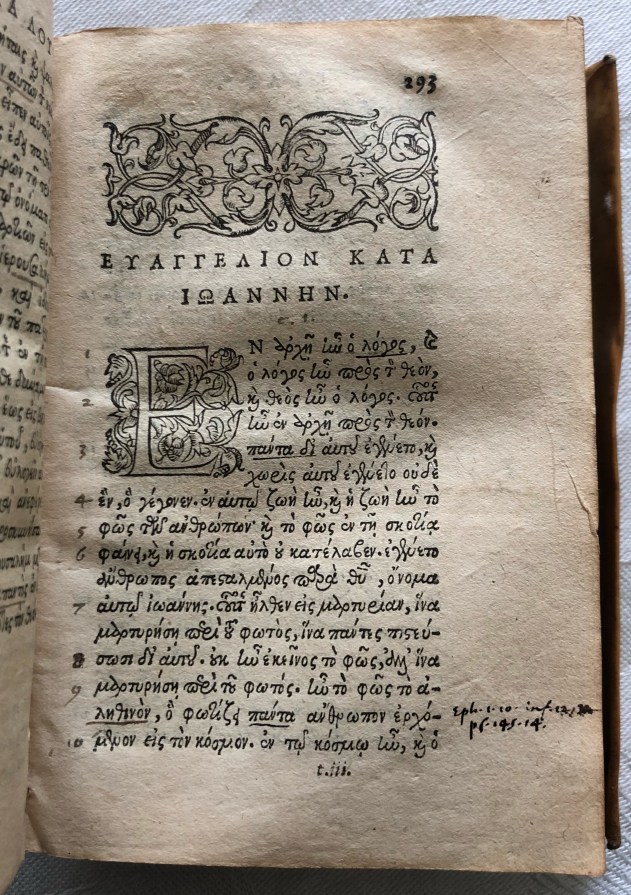 293
ΕΥΑΓΓΕΛΙΟΝ ΚΑΤΑ
ΙΩΑΝΝΗΝ.
c. 1.
1 ΕΝ ἀρχῇ ἦν ὁ λόγος, καὶ
ὁ λόγος ἦν πρὸς τὸν θεόν,
2 καὶ θεὸς ἦν ὁ λόγος. οὗτος
ἦν ἐν ἀρχῇ πρὸς τὸν θεόν.
3 πάντα δι' αὐτοῦ ἐγένετο, καὶ
χωρὶς αὐτοῦ ἐγένετο οὐδὲ
4 ἓν, ὃ γέγονεν. ἐν αὐτῷ ζωὴ ἦν, καὶ ἡ ζωὴ ἦν τὸ
5 φῶς τῶν ἀνθρώπων· καὶ τὸ φῶς ἐν τῇ σκοτίᾳ
6 φαίνει, καὶ ἡ σκοτία αὐτὸ οὐ κατέλαβεν. ἐγένετο
ἄνθρωπος ἀπεσταλμένος παρὰ θεοῦ, ὄνομα
7 αὐτῷ ἰωάννης. οὗτος ἦλθεν εἰς μαρτυρίαν, ἵνα
μαρτυρήσῃ περὶ τοῦ φωτός, ἵνα πάντες πιστεύ-
8 σωσι δι' αὐτοῦ. οὐκ ἦν ἐκεῖνος τὸ φῶς, ἀλλ' ἵνα
9 μαρτυρήσῃ περὶ τοῦ φωτός. ἦν τὸ φῶς τὸ ἀ-
ληθινὸν, ὃ φωτίζει πάντα ἄνθρωπον ἐρχό-
10 μενον εἰς τὸν κόσμον. ἐν τῷ κόσμῳ ἦν, καὶ ὁ
t.iii.
eph. 1. 10. inf. 12.
ps. 145. 14.